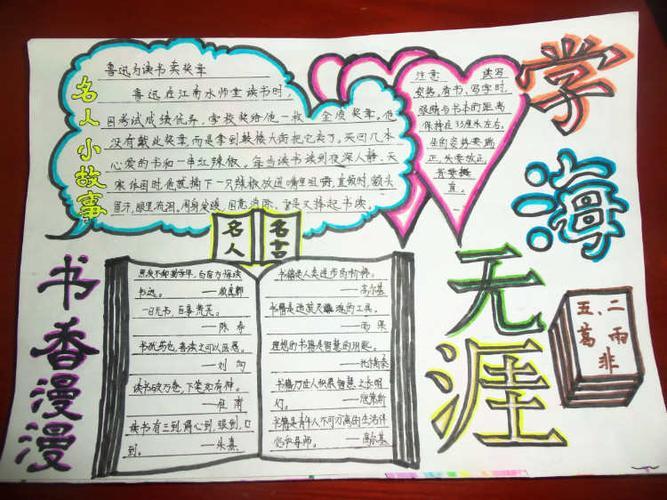 学海无涯
书香漫漫
名人小故事
鲁迅为读书卖奖章
鲁迅在江南水师堂读书时，
因考试成绩优异，学校奖给他一枚金质奖章。他
没有戴此奖章，而是拿到鼓楼大街把它卖了。买回几本
心爱的书和一串红辣椒。每当读书读到夜深人静、天
寒体困时，他就摘下一只辣椒放进嘴里咀嚼，直嚼得额头
冒汗，眼里流泪，周身发暖，困意消除，于是又捧起书读。
注意 读写
姿势，看书、写字时，
眼睛与书本的距离
保持在33厘米左右。
坐的姿势要端
正，头要放正，
背要挺
直。
名人
名言
黑发不知勤学早，白首方悔读
书迟。 —颜真卿
一日无书，百事荒芜。
—陈寿
书犹药也，善读之可以医愚。
—刘向
读书破万卷，下笔如有神。
—杜甫
读书有三到，谓心到，眼到，口
到。 —朱熹
书籍是人类进步的阶梯。
—高尔基
书籍是造就灵魂的工具。
—雨果
理想的书籍是智慧的钥匙。
—托尔斯泰
书籍乃世人积累智慧之长明
灯。 —寇第斯
书籍是青年人不可分离的生活伴
侣和导师。 —高尔基
五、二
葛雨非